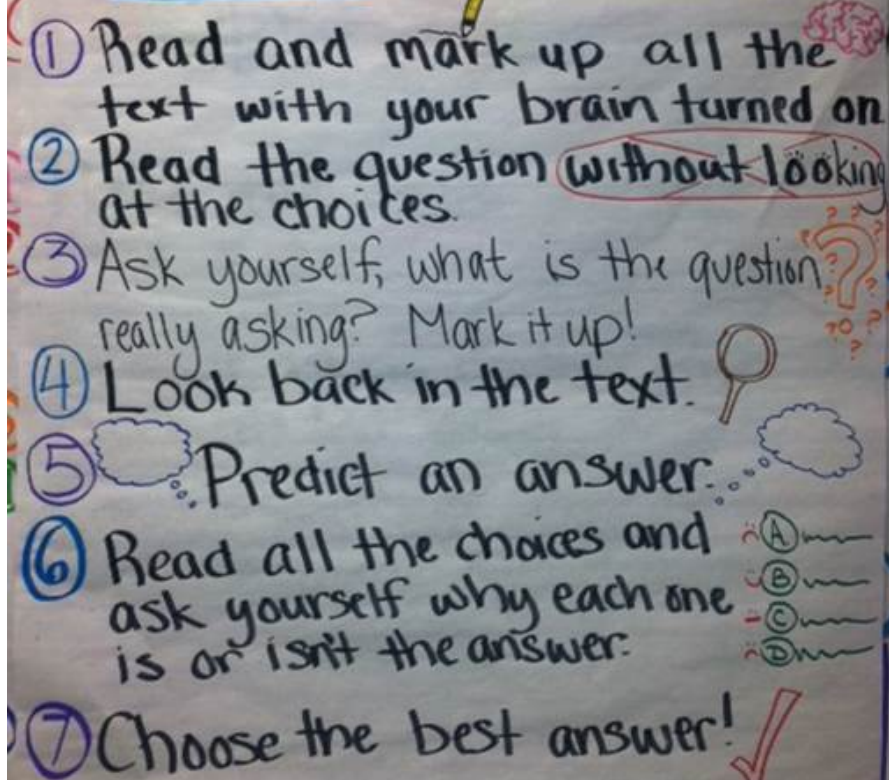 1 Read and mark up all the
text with your brain turned on
2 Read the question without looking
at the choices.
3 Ask yourself, what is the question
really asking? Mark it up!
4 Look back in the text.
5 Predict an answer.
6 Read all the choices and
ask yourself why each one
is or isn't the answer.
A
B
C
D
7 Choose the best answer!